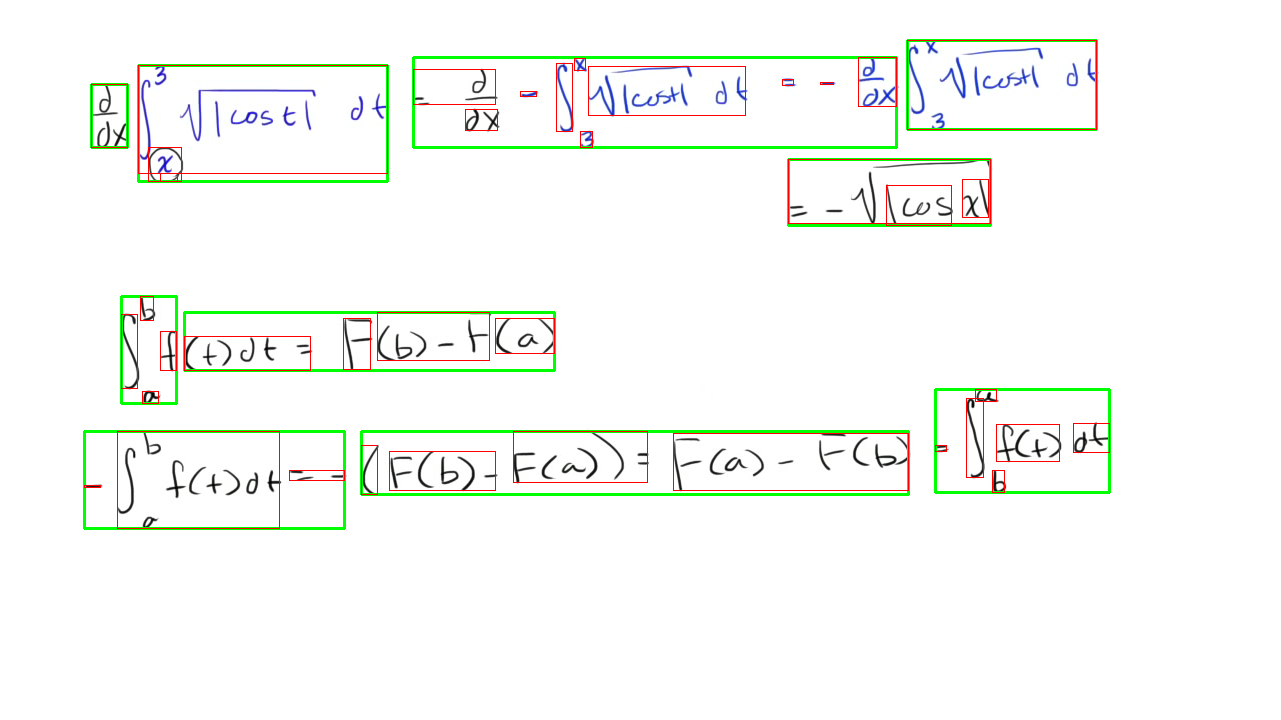 d/dx ∫_x^3 √|cos t| dt = d/dx - ∫_3^x √|cos t| dt = - d/dx ∫_3^x √|cos t| dt
= -√|cos x|
∫_a^b f(t)dt = F(b) - F(a)
- ∫_a^b f(t)dt = -(F(b) - F(a)) = F(a) - F(b) = ∫_b^a f(t) dt